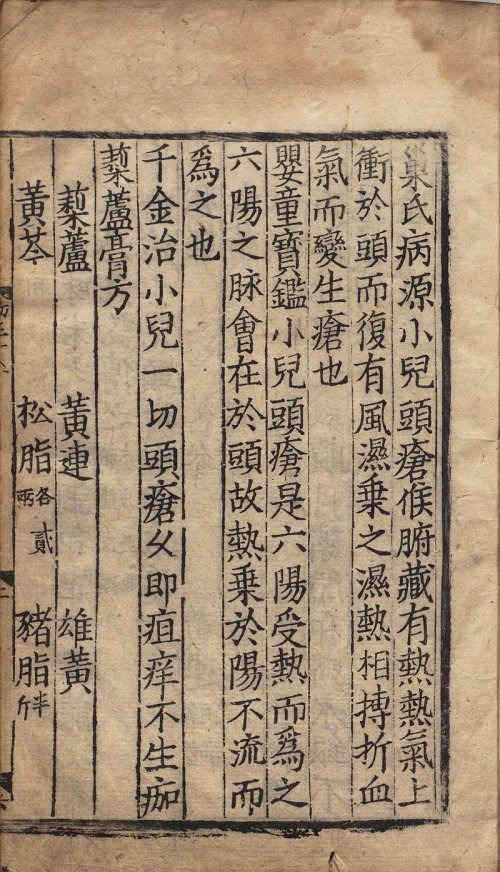 巢氏病源小兒頭瘡候腑藏有熱熱氣上
衝於頭而復有風濕乗之濕熱相摶折血
氣而變生瘡也
嬰童寳鑑小兒頭瘡是六陽受熱而爲之
六陽之脉會在於頭故熱乗於陽不流而
爲之也
千金治小兒一切頭瘡乆即疽痒不生痂
藜蘆膏方
藜蘆　黃連　雄黃
黃芩　松脂各貳兩　豬脂半斤